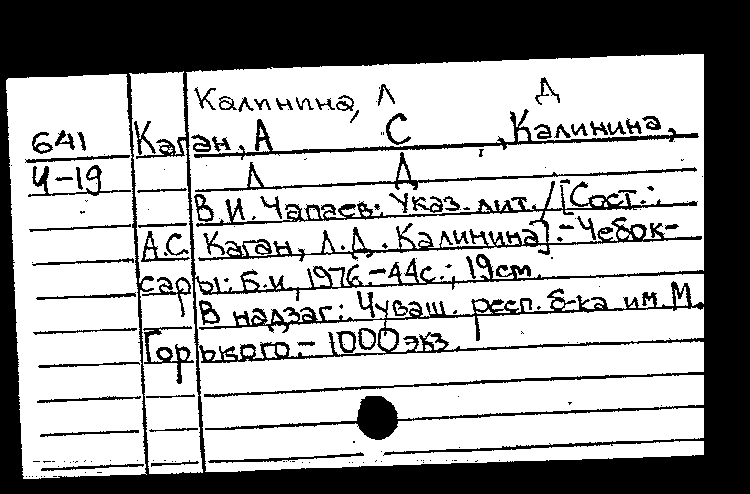 Калинина, Л Д
641 Каган, А С , Калинина,
Ч-19 Л Д
В.И. Чапаев: Указ. лит. / [Сост.:
А.С. Каган, Л.Д. Калинина]. - Чебок-
сары: Б.и, 1976. - 44с.; 19см.
В надзаг.: Чуваш. респ. б-ка им. М.
Горького. - 1000 экз.